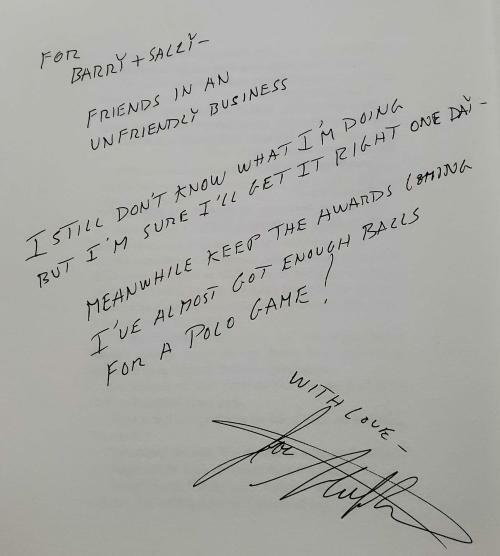 FOR
BARRY + SALLY -
FRIENDS IN AN
UNFRIENDLY BUSINESS
I STILL DON'T KNOW WHAT I'M DOING
BUT I'M SURE I'LL GET IT RIGHT ONE DAY -
MEANWHILE KEEP THE AWARDS COMING
I'VE ALMOST GOT ENOUGH BALLS
FOR A POLO GAME!
WITH LOVE -
Joe